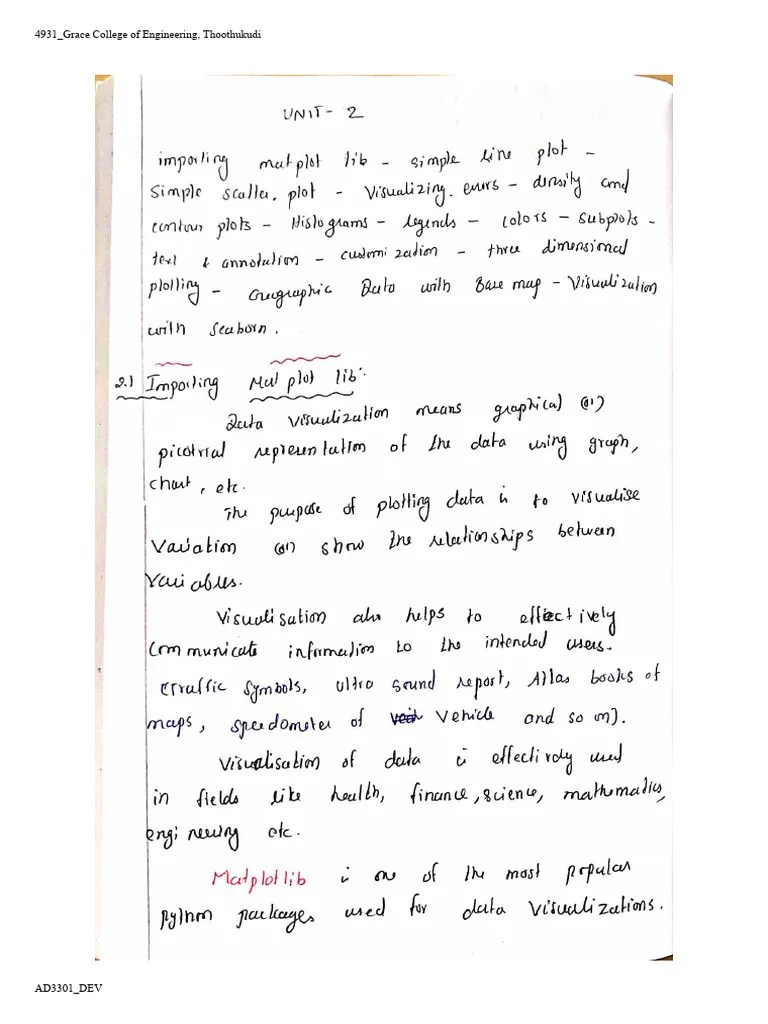 4931_Grace College of Engineering, Thoothukudi
UNIT- 2
importing matplot lib - simple line plot -
Simple scatter plot - Visualizing errors - density and
contour plots - Histograms - legends - colors - subplots -
text & annotation - customization - three dimensional
plotting - Geographic Data with Base map - Visualization
with seaborn.
2.1 Importing Mat plot lib:
Data visualization means graphical (or)
picotrial representation of the data using graph,
chart, etc.
The purpose of plotting data is to visualise
Variation (or) show the relationships between
Variables.
Visualisation also helps to effectively
Communicate information to the intended users.
(Traffic Symbols, Ultra sound report, Atlas books of
maps, speedometer of Vehicle and so on).
Visualisation of data is effectively used
in fields like health, finance, science, mathematics,
engineering etc.
Matplotlib is one of the most popular
python packages used for data visualizations.
AD3301_DEV